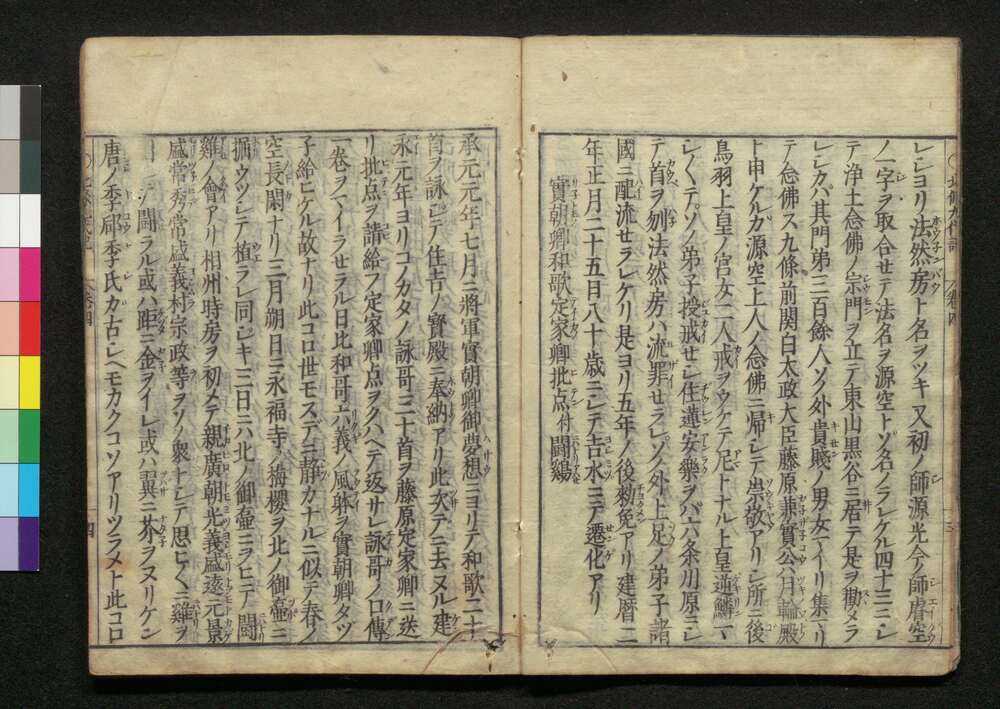 レシヨリ法然房ト名ヲツキ又初ノ師源光今ノ師叡空
ノ一字ヲ取合セテ法名ヲ源空トゾ名ノラレケル四十三ニシ
テ浄土念佛ノ宗門ヲ立テ東山黒谷ニ居テ是ヲ勤メラ
レシカバ其門弟三百餘人ソノ外貴賎ノ男女マイリ集リ
テ念佛ス九條前関白太政大臣藤原兼實公月輪殿
ト申ケルカ源空上人ノ念佛ニ帰シテ崇敬アリシ所ニ後
鳥羽上皇ノ官女二人戒ヲウケテ尼トナル上皇逆鱗マ
シクテソノ弟子授戒せシ住蓮安樂ヲバ六条川原ニシ
テ首ヲ刎法然房ハ流罪せラレソノ外上足ノ弟子諸
國ニ配流せラレケリ是ヨリ五年ノ後勅免アリ建暦二
年正月二十五日八十歳ニシテ吉水ニテ遷化アリ
實朝卿和歌定家卿批点付闘鷄
承元元年七月ニ將軍實朝卿御夢想ニヨリテ和歌二十
首ヲ詠シテ住吉ノ寳殿ニ奉納アリ此次テニ去ヌル建
永元年ヨリコノカタノ詠哥三十首ヲ藤原定家卿ニ送
リ批点ヲ請給フ定家卿点ヲクハヘテ返サレ詠哥ノ口傳
一卷ヲマイラせラル日比和哥六義ノ風躰ヲ實朝卿タヅ
子給ヒケル故ナリ此コロ世モスデニ静カナルニ似テ春ノ
空長閑ナリ三月朔日ニ永福寺ノ梅櫻ヲ北ノ御壺ニ
掘ウツシテ植ラレ同シキ三日ニハ北ノ御壺ニヲヒテ闘
雞ノ會アリ相州時房ヲ初メテ親廣朝光義盛遠元景
盛常秀常盛義村宗政等ヲソノ衆トシテ思ヒ〱ニ雞ヲ
闘ラル或ハ距ニ金ヲイレ或ハ翼ニ芥ヲヌリケン
唐ノ季郈季氏ガ古シヘモカクコソアリツラメト此コロ